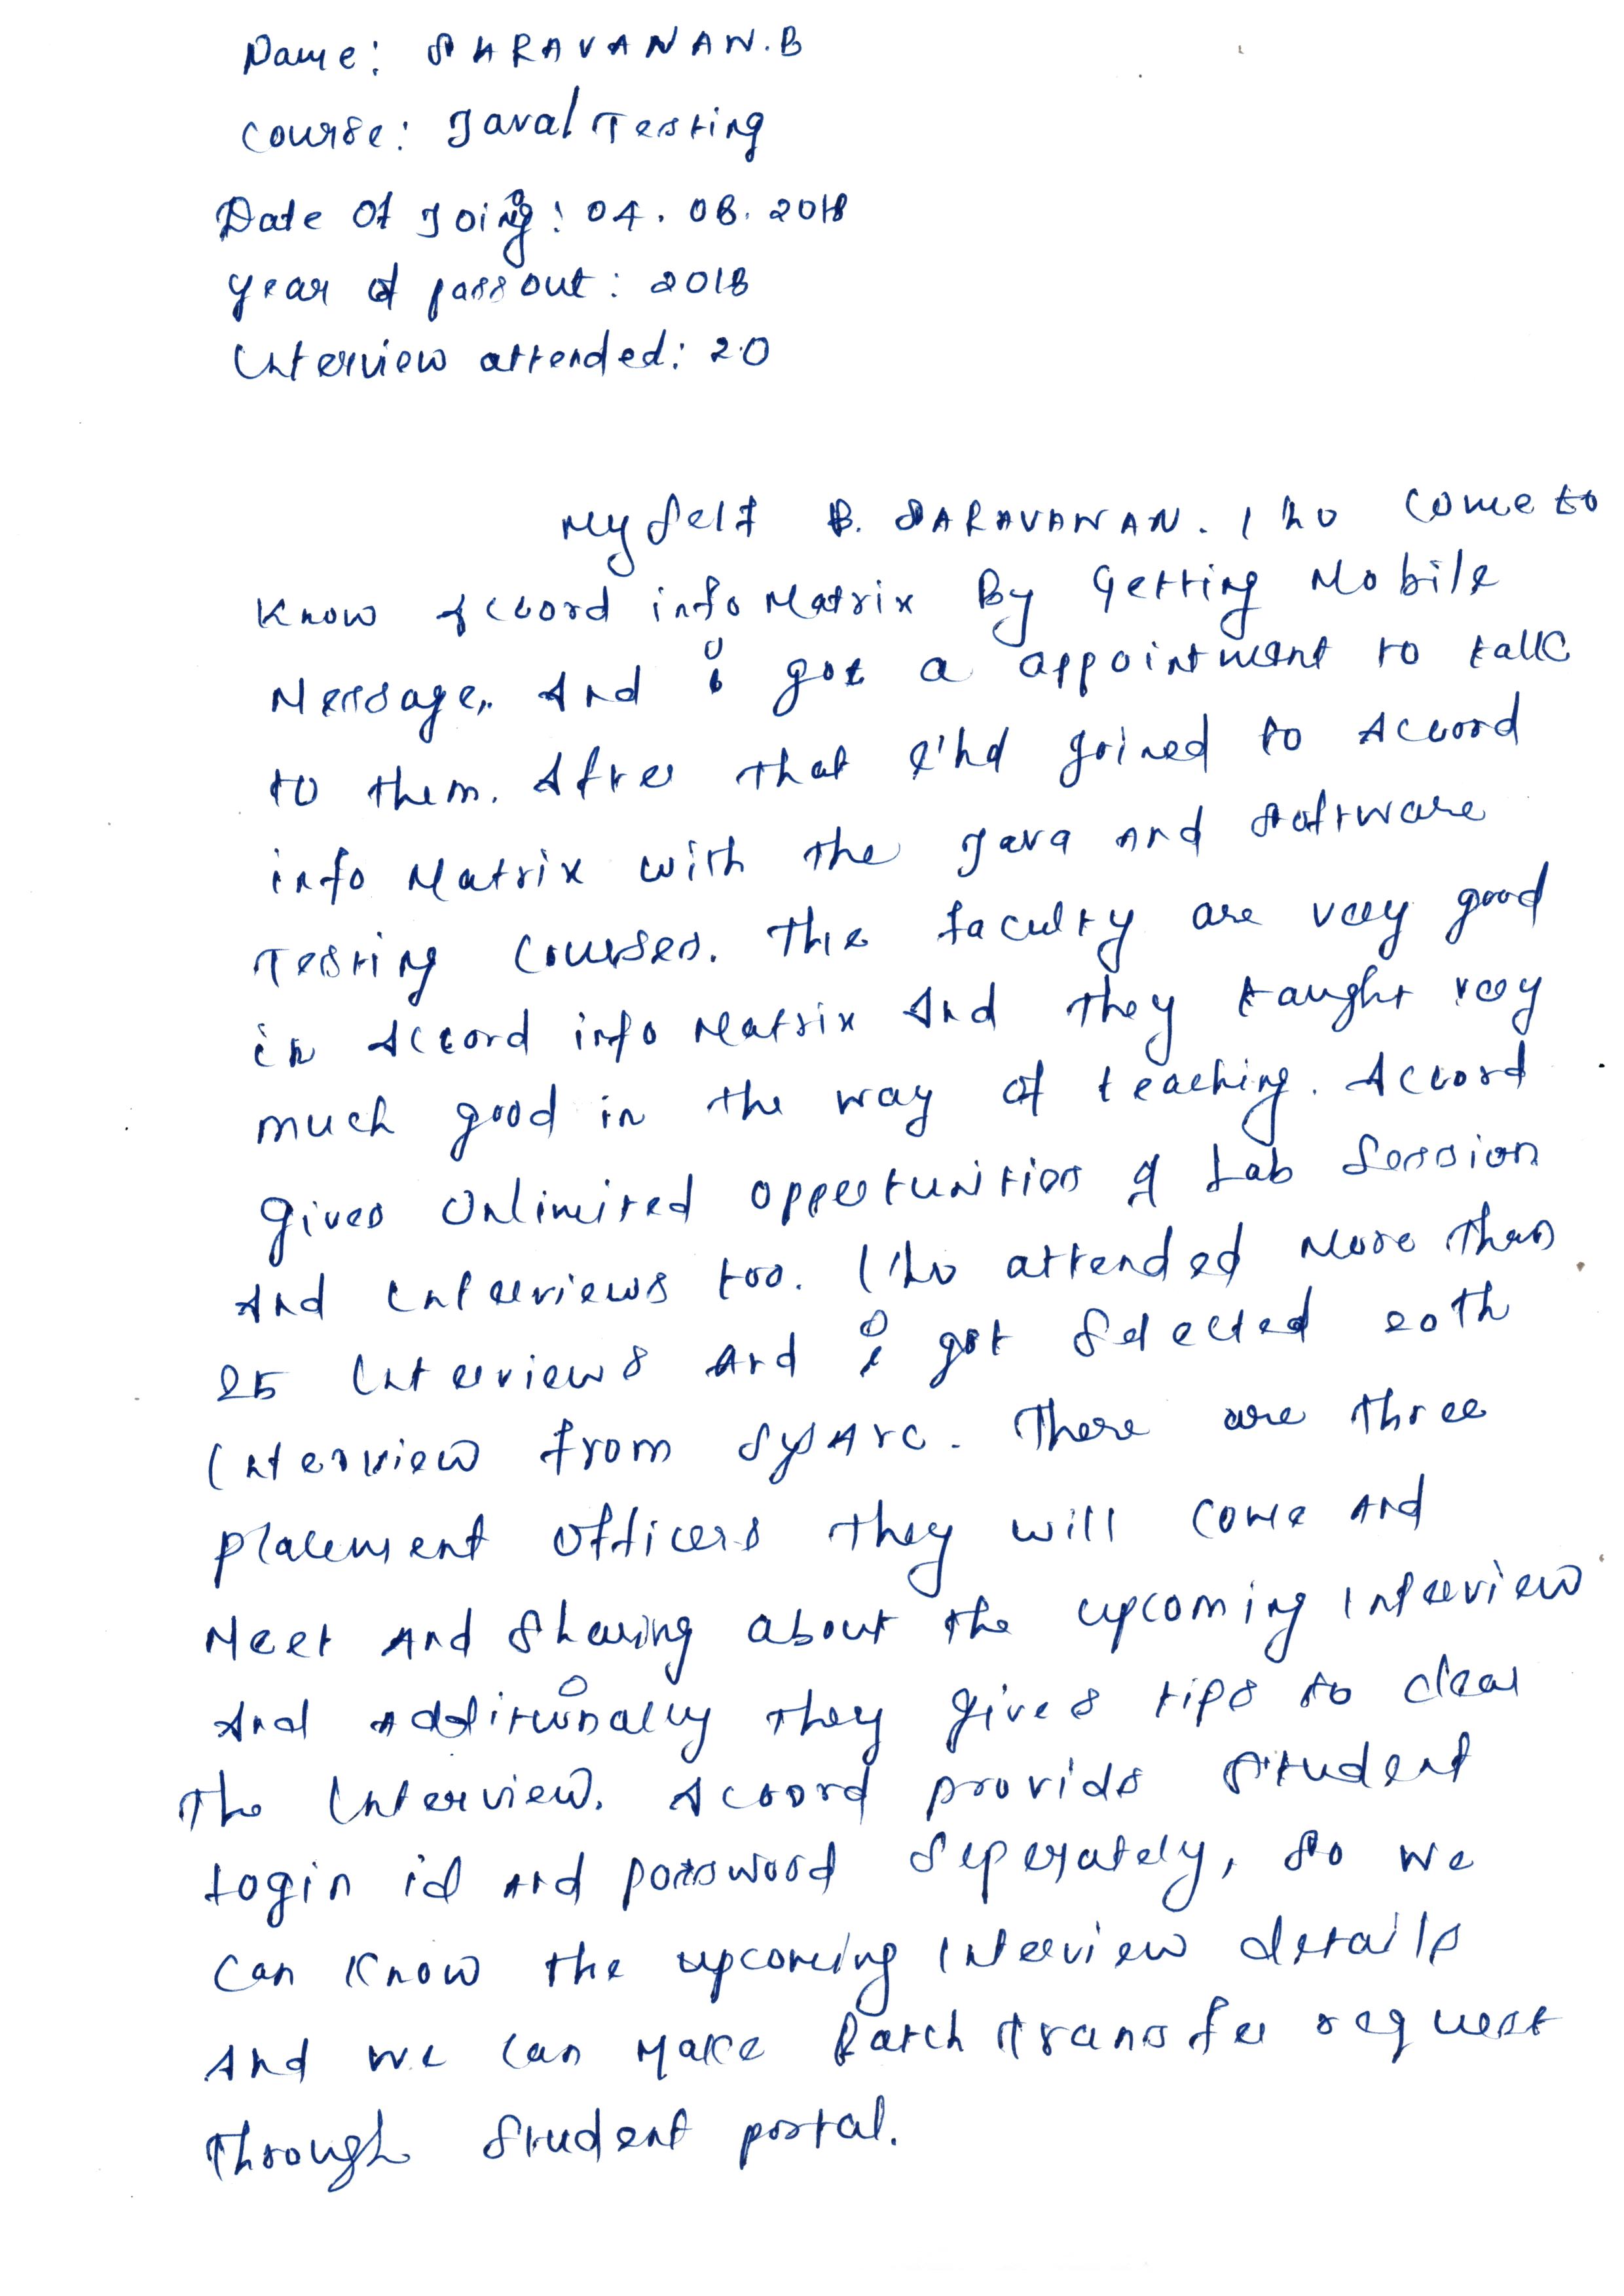 Name: SARAVANAN.B
Course: Java/Testing
Date Of Joing: 04.08.2018
Year of passout: 2018
Interview attended: 20
My self B. SARAVANAN. I come to
Know Accord info Matrix By Getting Mobile
Message, And i got a appointment to talk
to them. After that I'hd joined to Accord
info Matrix with the Java and Software
Testing Courses. The faculty are very good
in Accord info Matrix And They taught very
much good in the way of teaching. Accord
gives Unlimited opportunities of Lab Session
And Interviews too. attended More than
25 Interviews And i got Selected 20th
Interview from SysArc. There are three
placement Officers They will come And
Meet And Sharing about the upcoming Interview
And Additionally They gives tips to clear
The Interview. Accord provids Student
Login id and password Seperately, So we
can Know the upcoming Interview details
And we can Make Batch transfer request
Through Student portal.